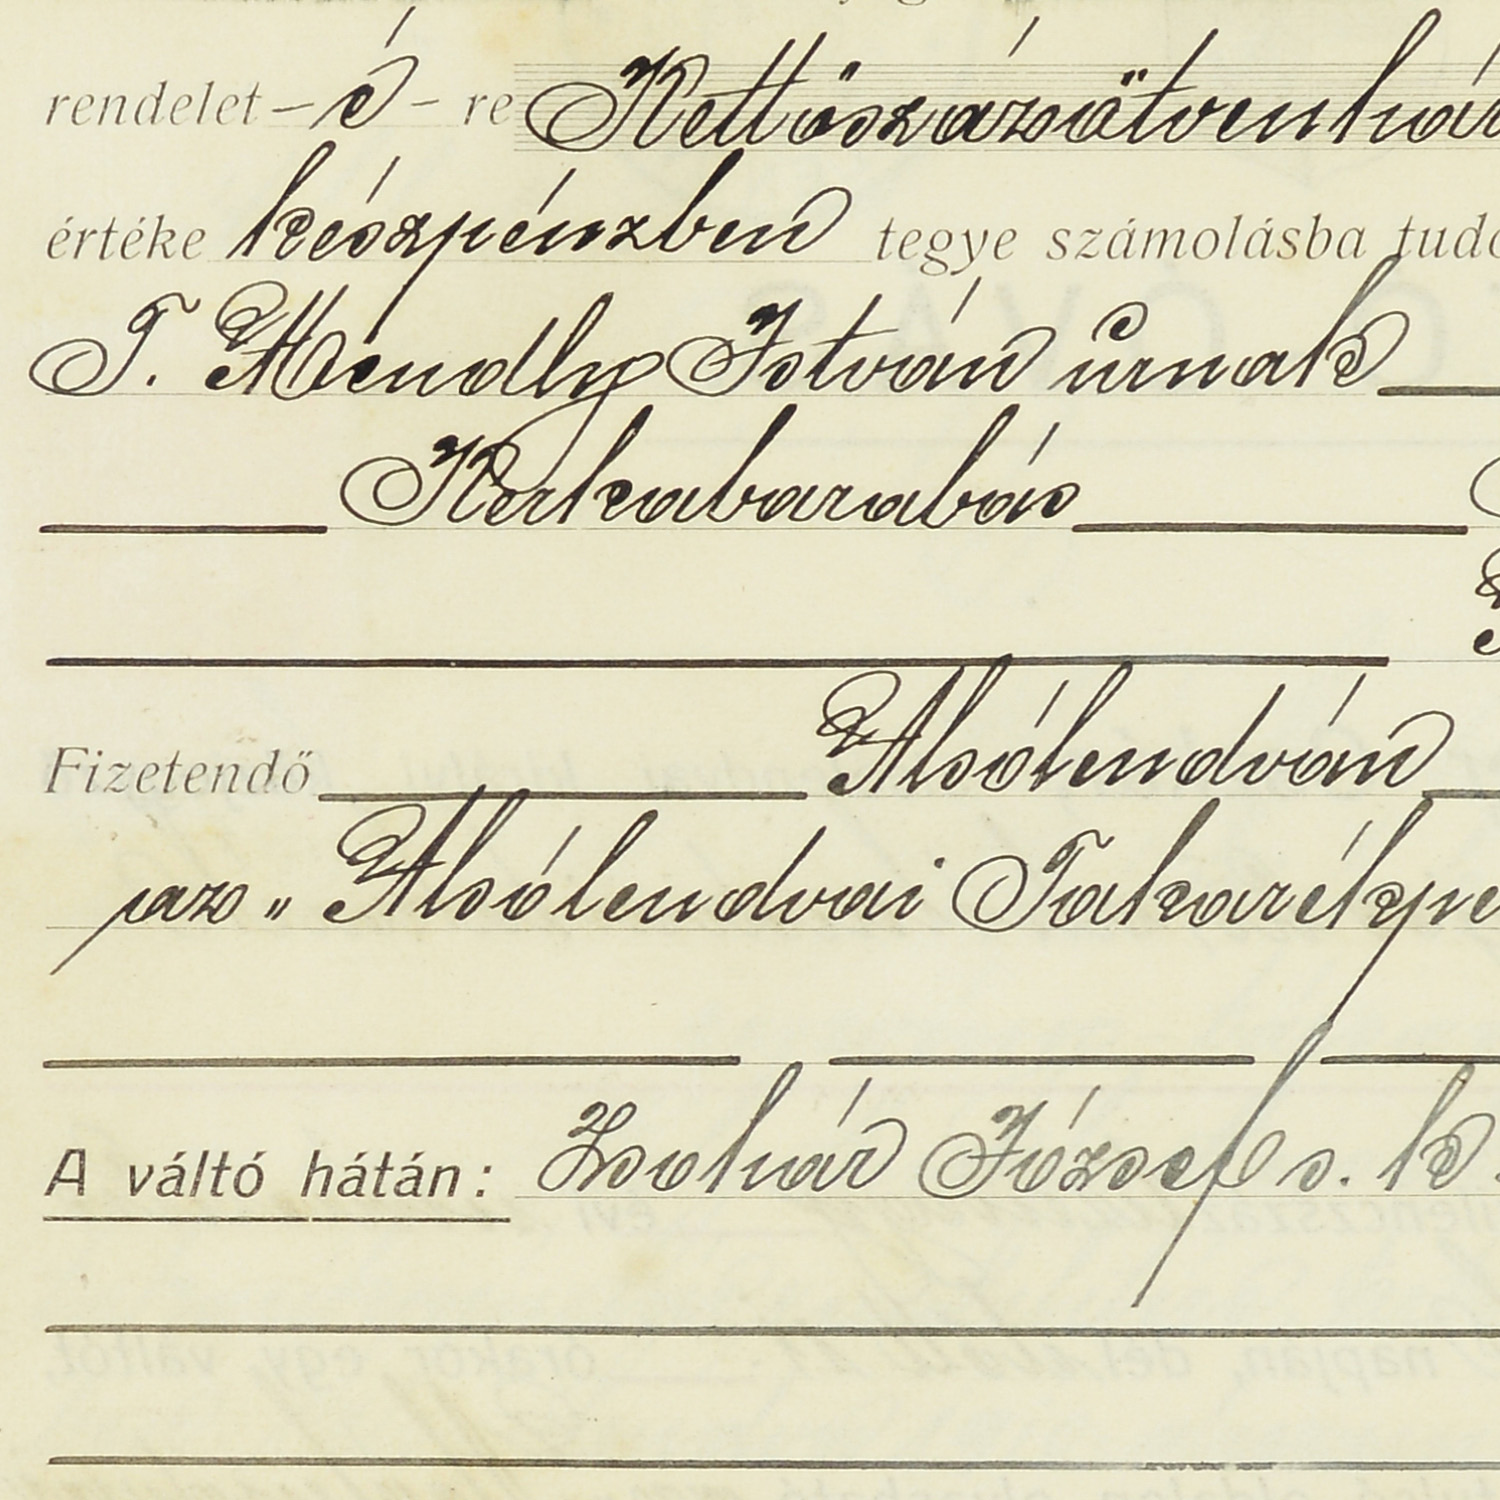 rendelet – é – re Kettőszázötvenhár
értéke készpénzben tegye számolásba tudó
T. Mendly István úrnak
Kerkabarabás
Fizetendő Alsólendván
az „ Alsólendvai Takarékpé
A váltó hátán: Zsohár József s. k.